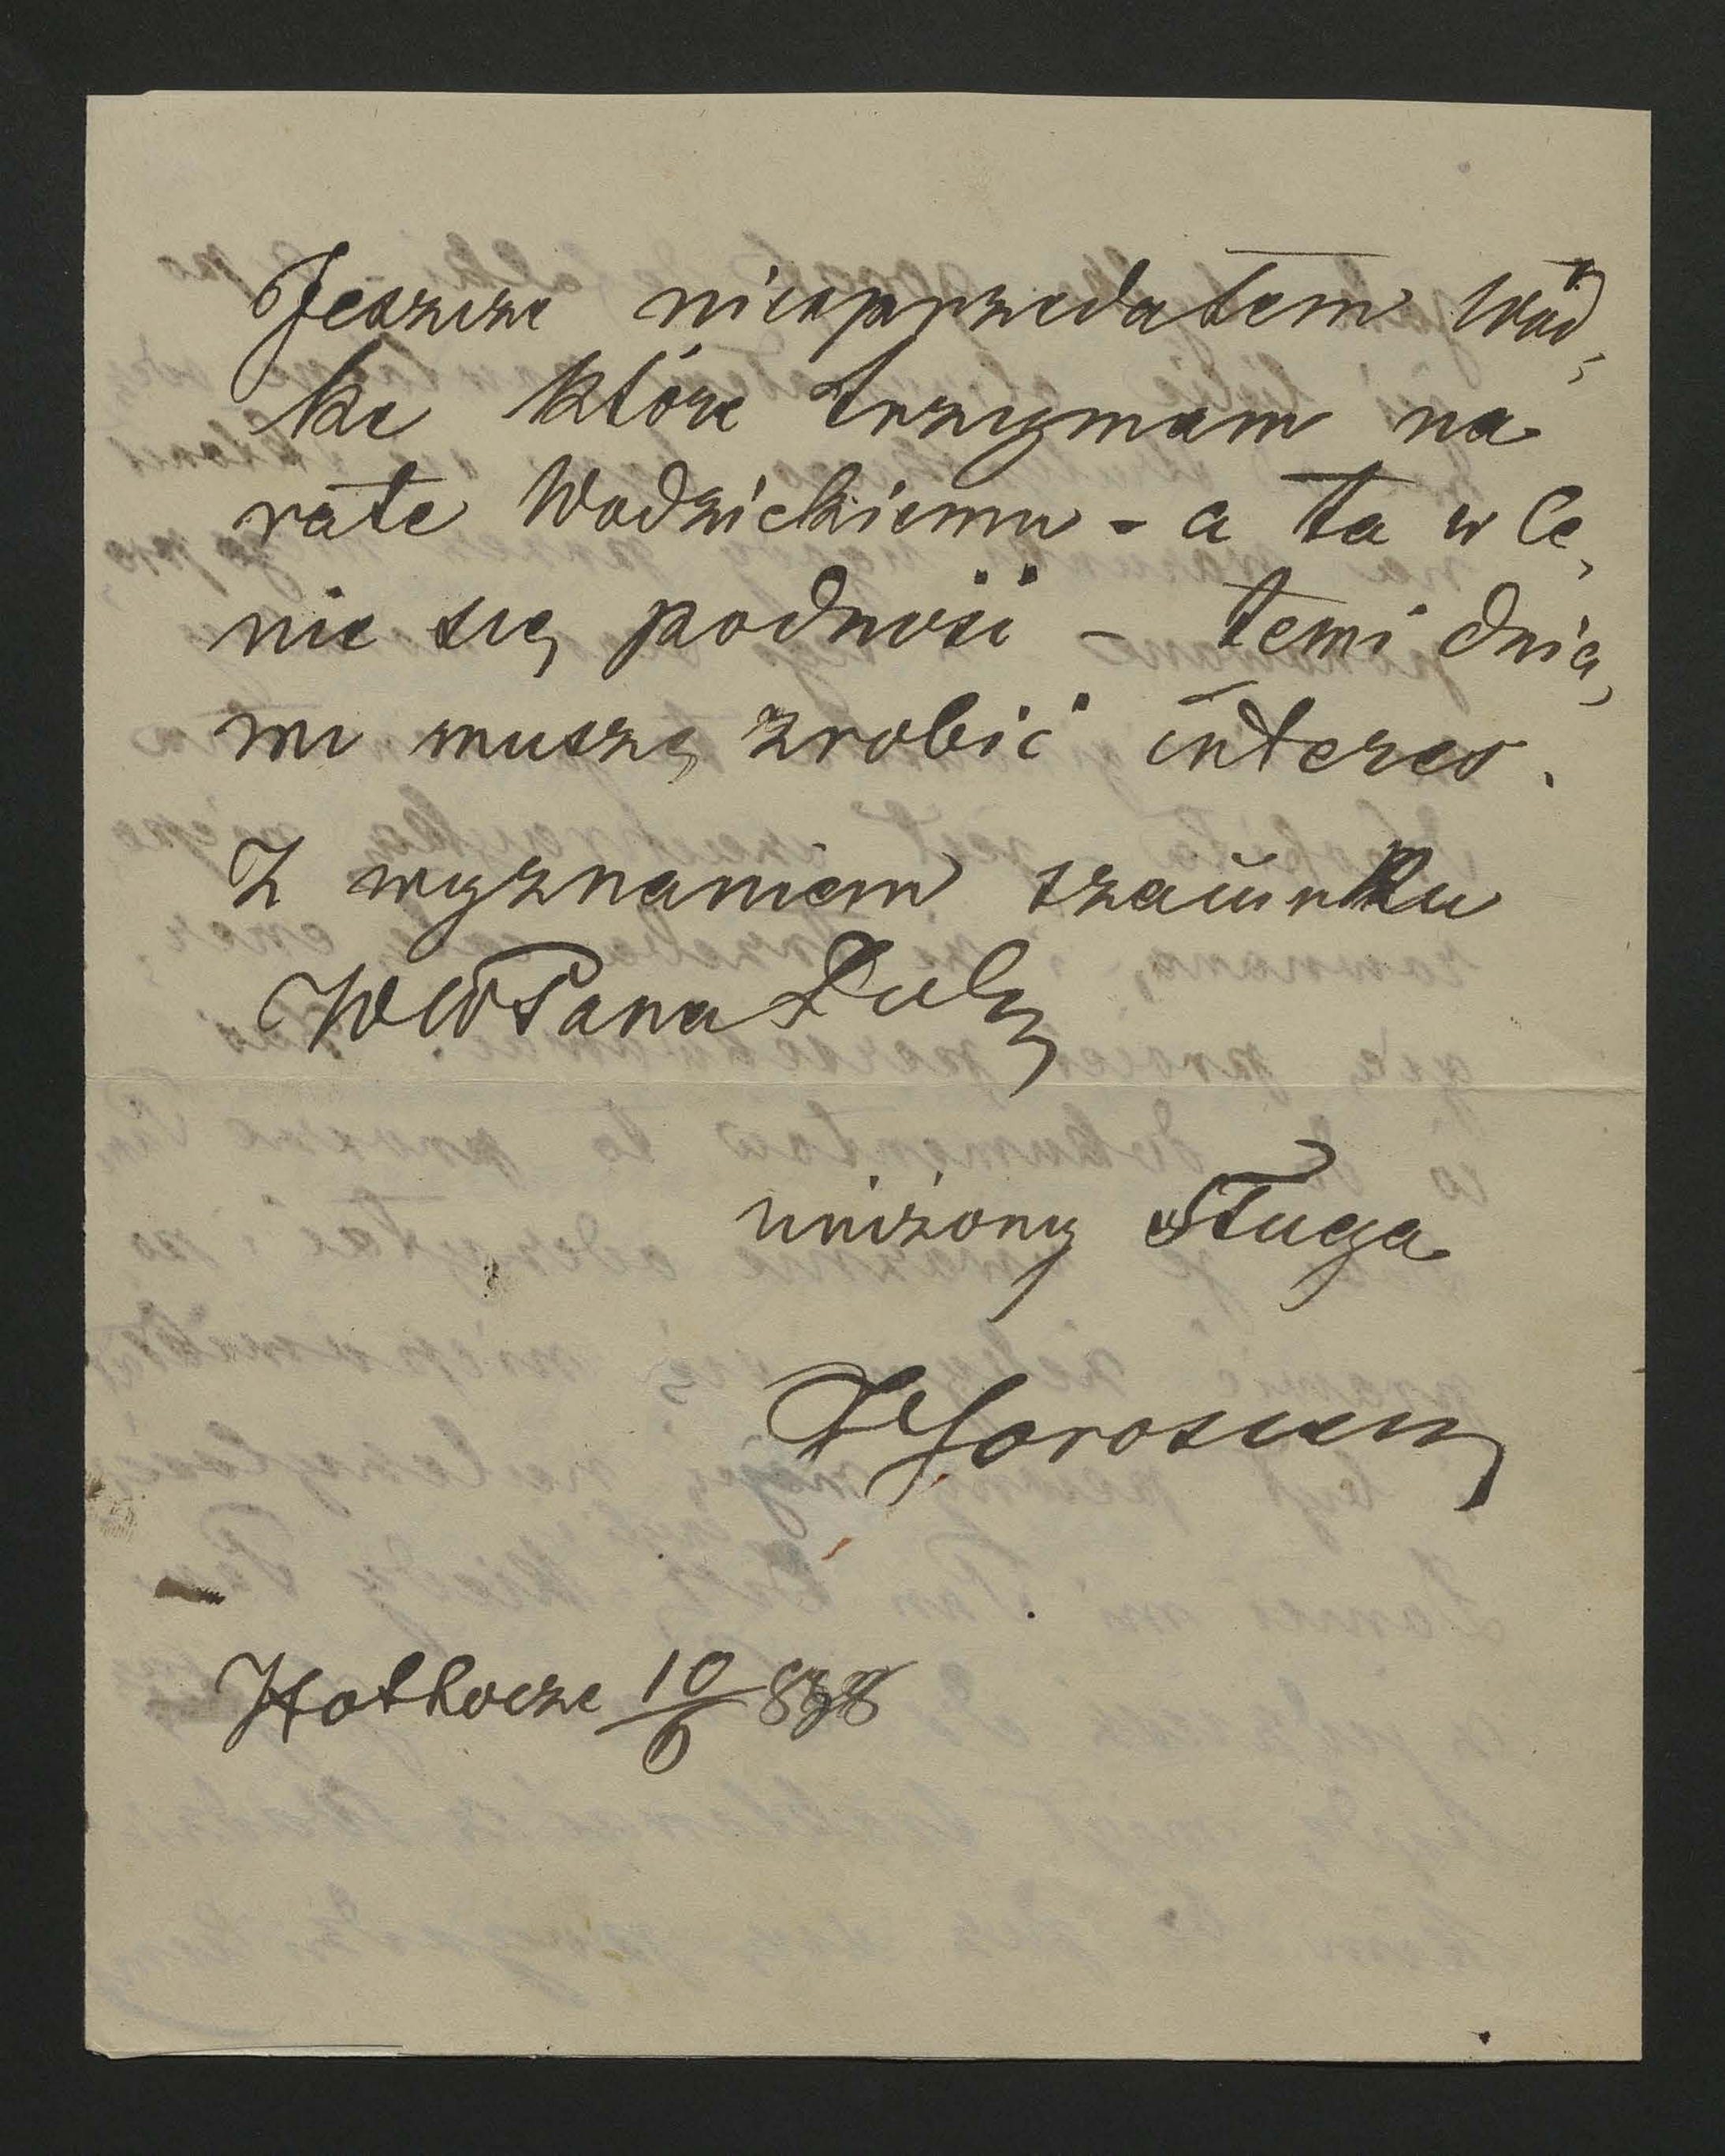 Jeszcze niesprzedałem Wód,
ke które trzymam na
rate Wodzickiemu - a ta w Ce,
nie się podnosi - temi dnia,
mi muszę zrobić interes.
Z wyznaniem szacunku
WW Pana Dob
uniżony Sługa
Hotkocze 10/6 878